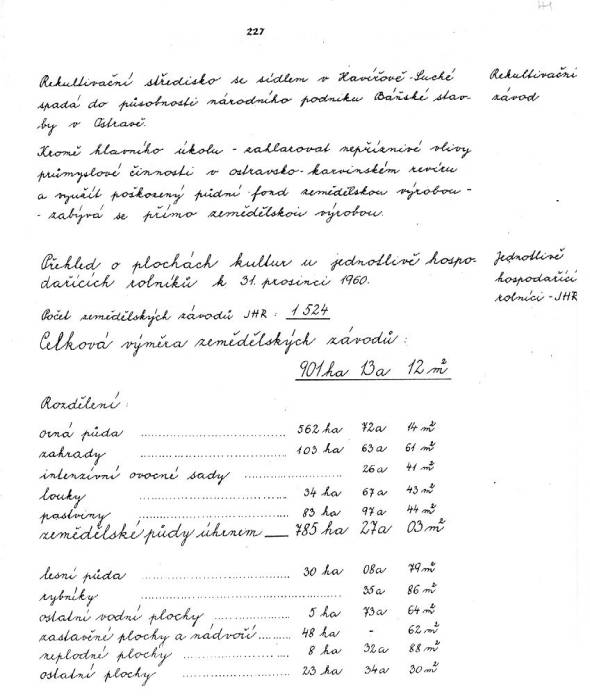 227
Rekultivační středisko se sídlem v Havířově-Suché
spadá do působnosti národního podniku Báňské stav-
by v Ostravě.
Rekultivační
závod
Kromě hlavního úkolu - zahlazovat nepříznivé vlivy
průmyslové činnosti v ostravsko-karvinském revíru
a využít poškozený půdní fond zemědělskou výrobou -
- zabývá se přímo zemědělskou výrobou.
Přehled o plochách kultur u jednotlivě hospo-
dařících rolníků k 31. prosinci 1960.
Jednotlivě
hospodařící
rolníci - JHR
Počet zemědělských závodů JHR : 1 524
Celková výměra zemědělských závodů :
901 ha 13 a 12 m²
Rozdělení :
orná půda .................... 562 ha 72 a 14 m²
zahrady .................... 103 ha 63 a 61 m²
intenzívní ovocné sady .................... 26 a 41 m²
louky .................... 34 ha 67 a 43 m²
pastviny .................... 83 ha 97 a 44 m²
zemědělské půdy úhrnem __ 785 ha 27 a 03 m²
lesní půda .................... 30 ha 08 a 79 m²
rybníky .................... 35 a 86 m²
ostatní vodní plochy .......... 5 ha 73 a 64 m²
zastavění plochy a nádvoří ......... 48 ha - 62 m²
neplodné plochy .................... 8 ha 32 a 88 m²
ostatní plochy .................... 23 ha 34 a 30 m²